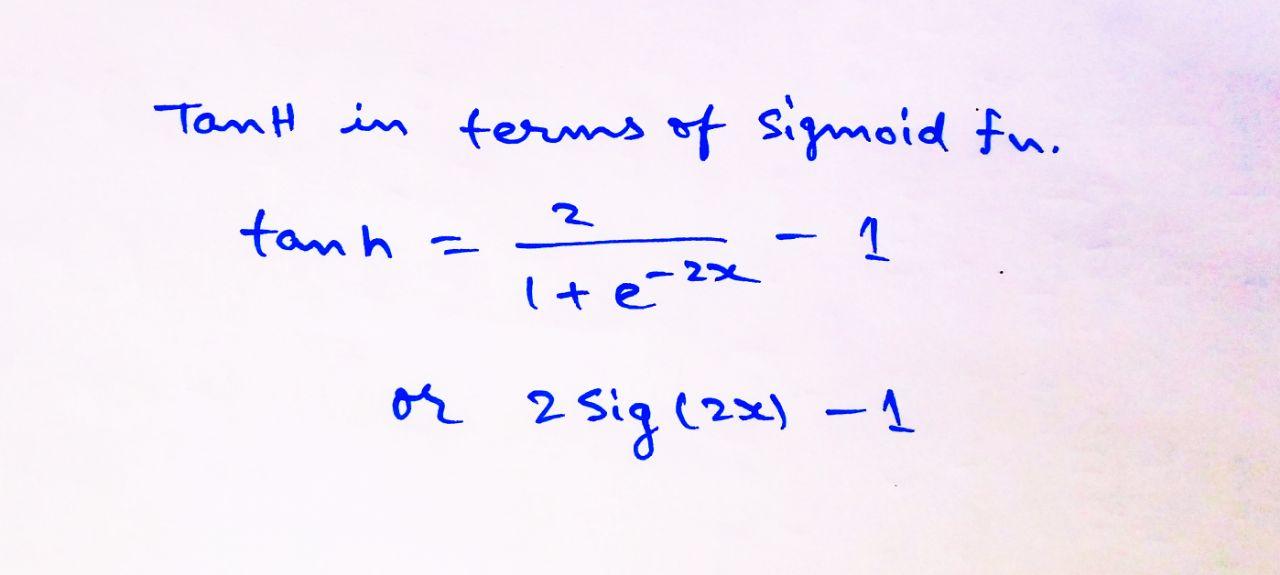 TanH in terms of sigmoid fn.
tanh = 2 / (1 + e^{-2x}) - 1
or 2 sig(2x) - 1